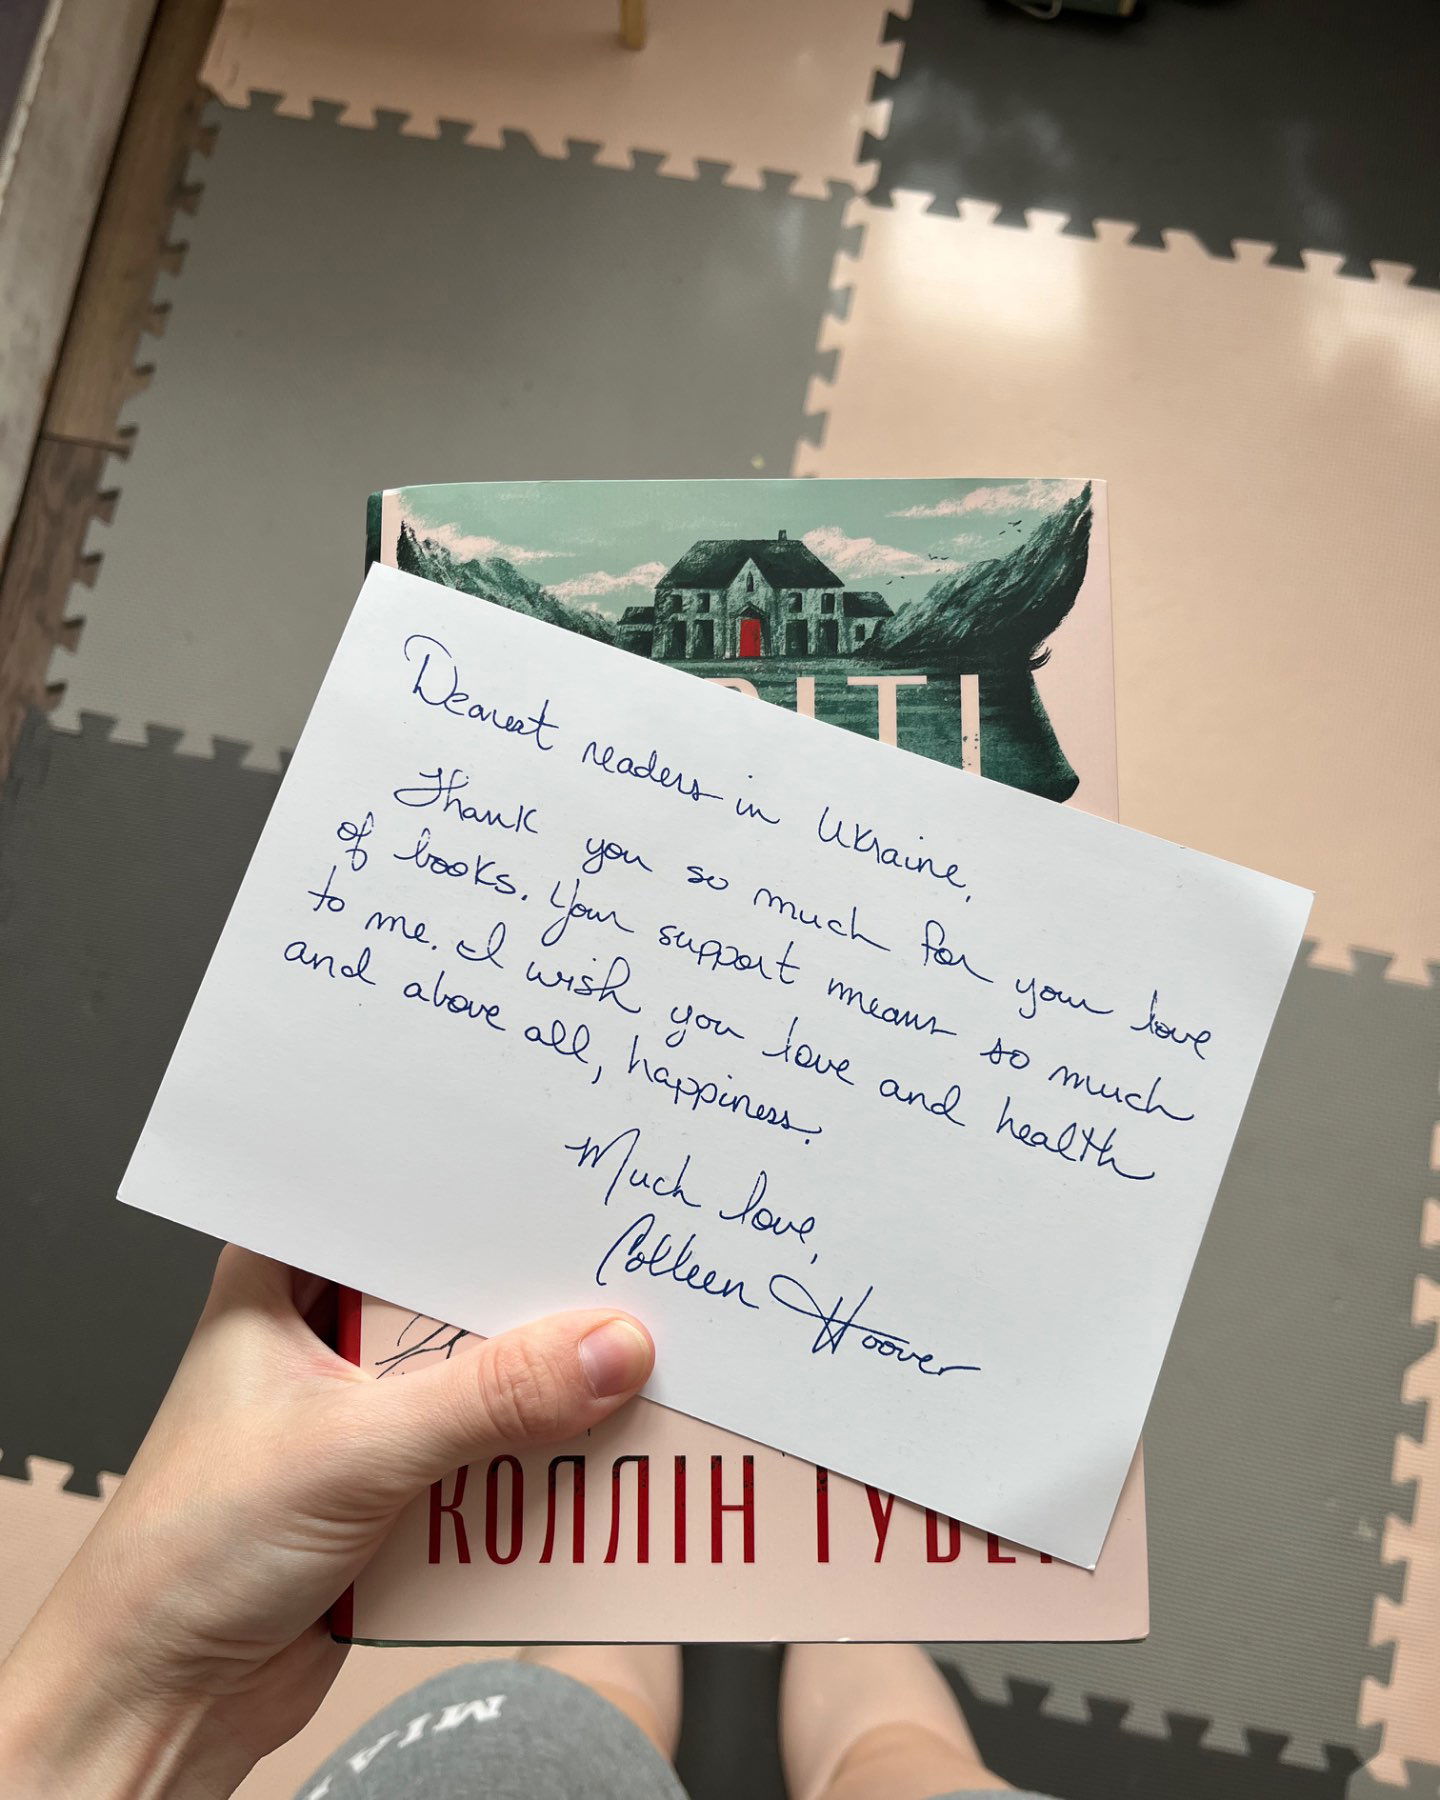 Dearest readers in Ukraine,
Thank you so much for your love
of books. Your support means so much
to me. I wish you love and health
and above all, happiness.
Much love,
Colleen Hoover
КОЛЛІН ГУВЕР